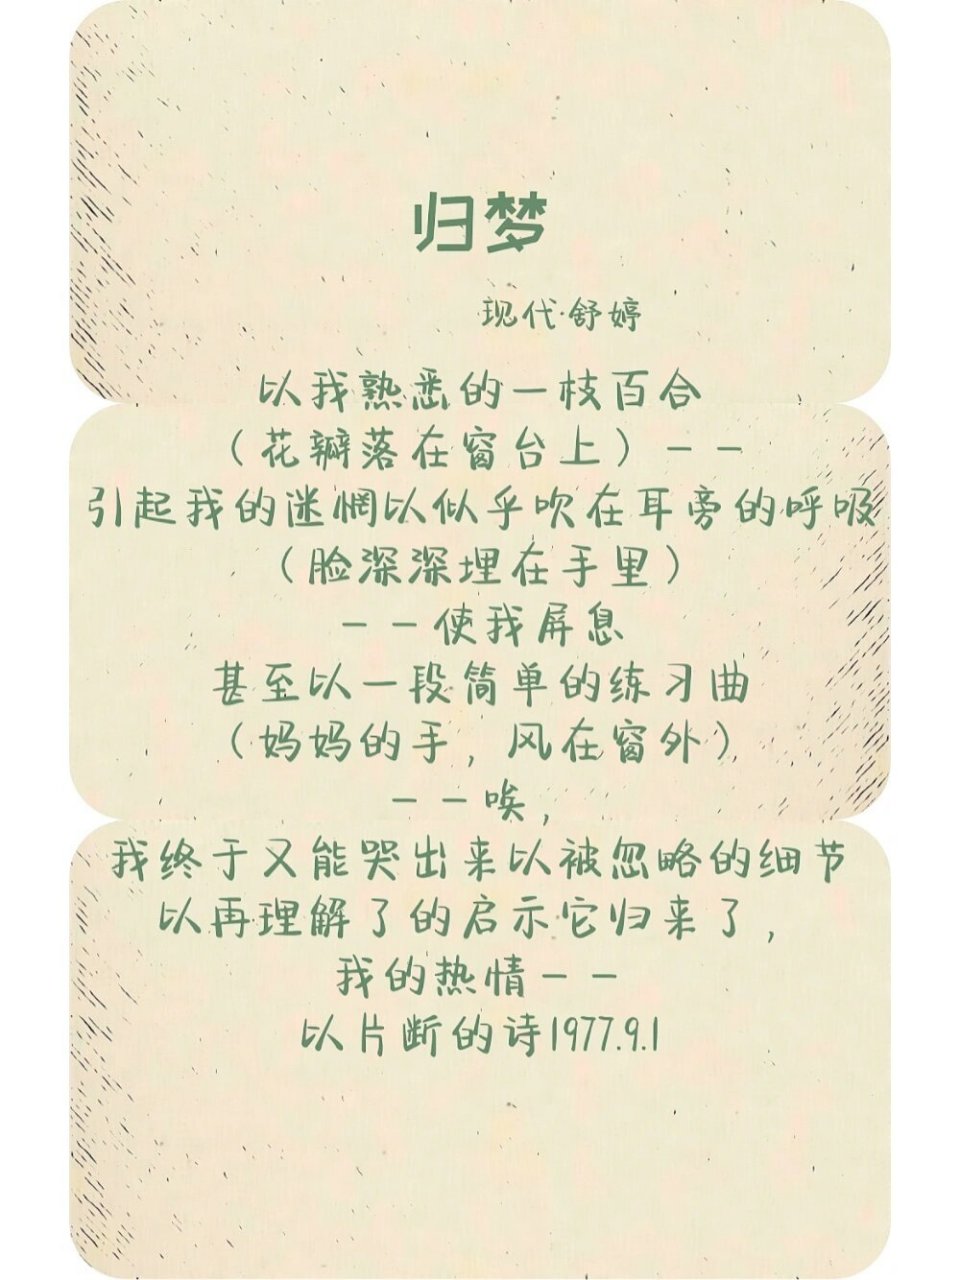 归梦
现代·舒婷
以我熟悉的一枝百合
（花瓣落在窗台上）--
引起我的迷惘以似乎吹在耳旁的呼吸
（脸深深埋在手里）
--使我屏息
甚至以一段简单的练习曲
（妈妈的手，风在窗外）
--唉，
我终于又能哭出来以被忽略的细节
以再理解了的启示它归来了，
我的热情--
以片断的诗1977.9.1